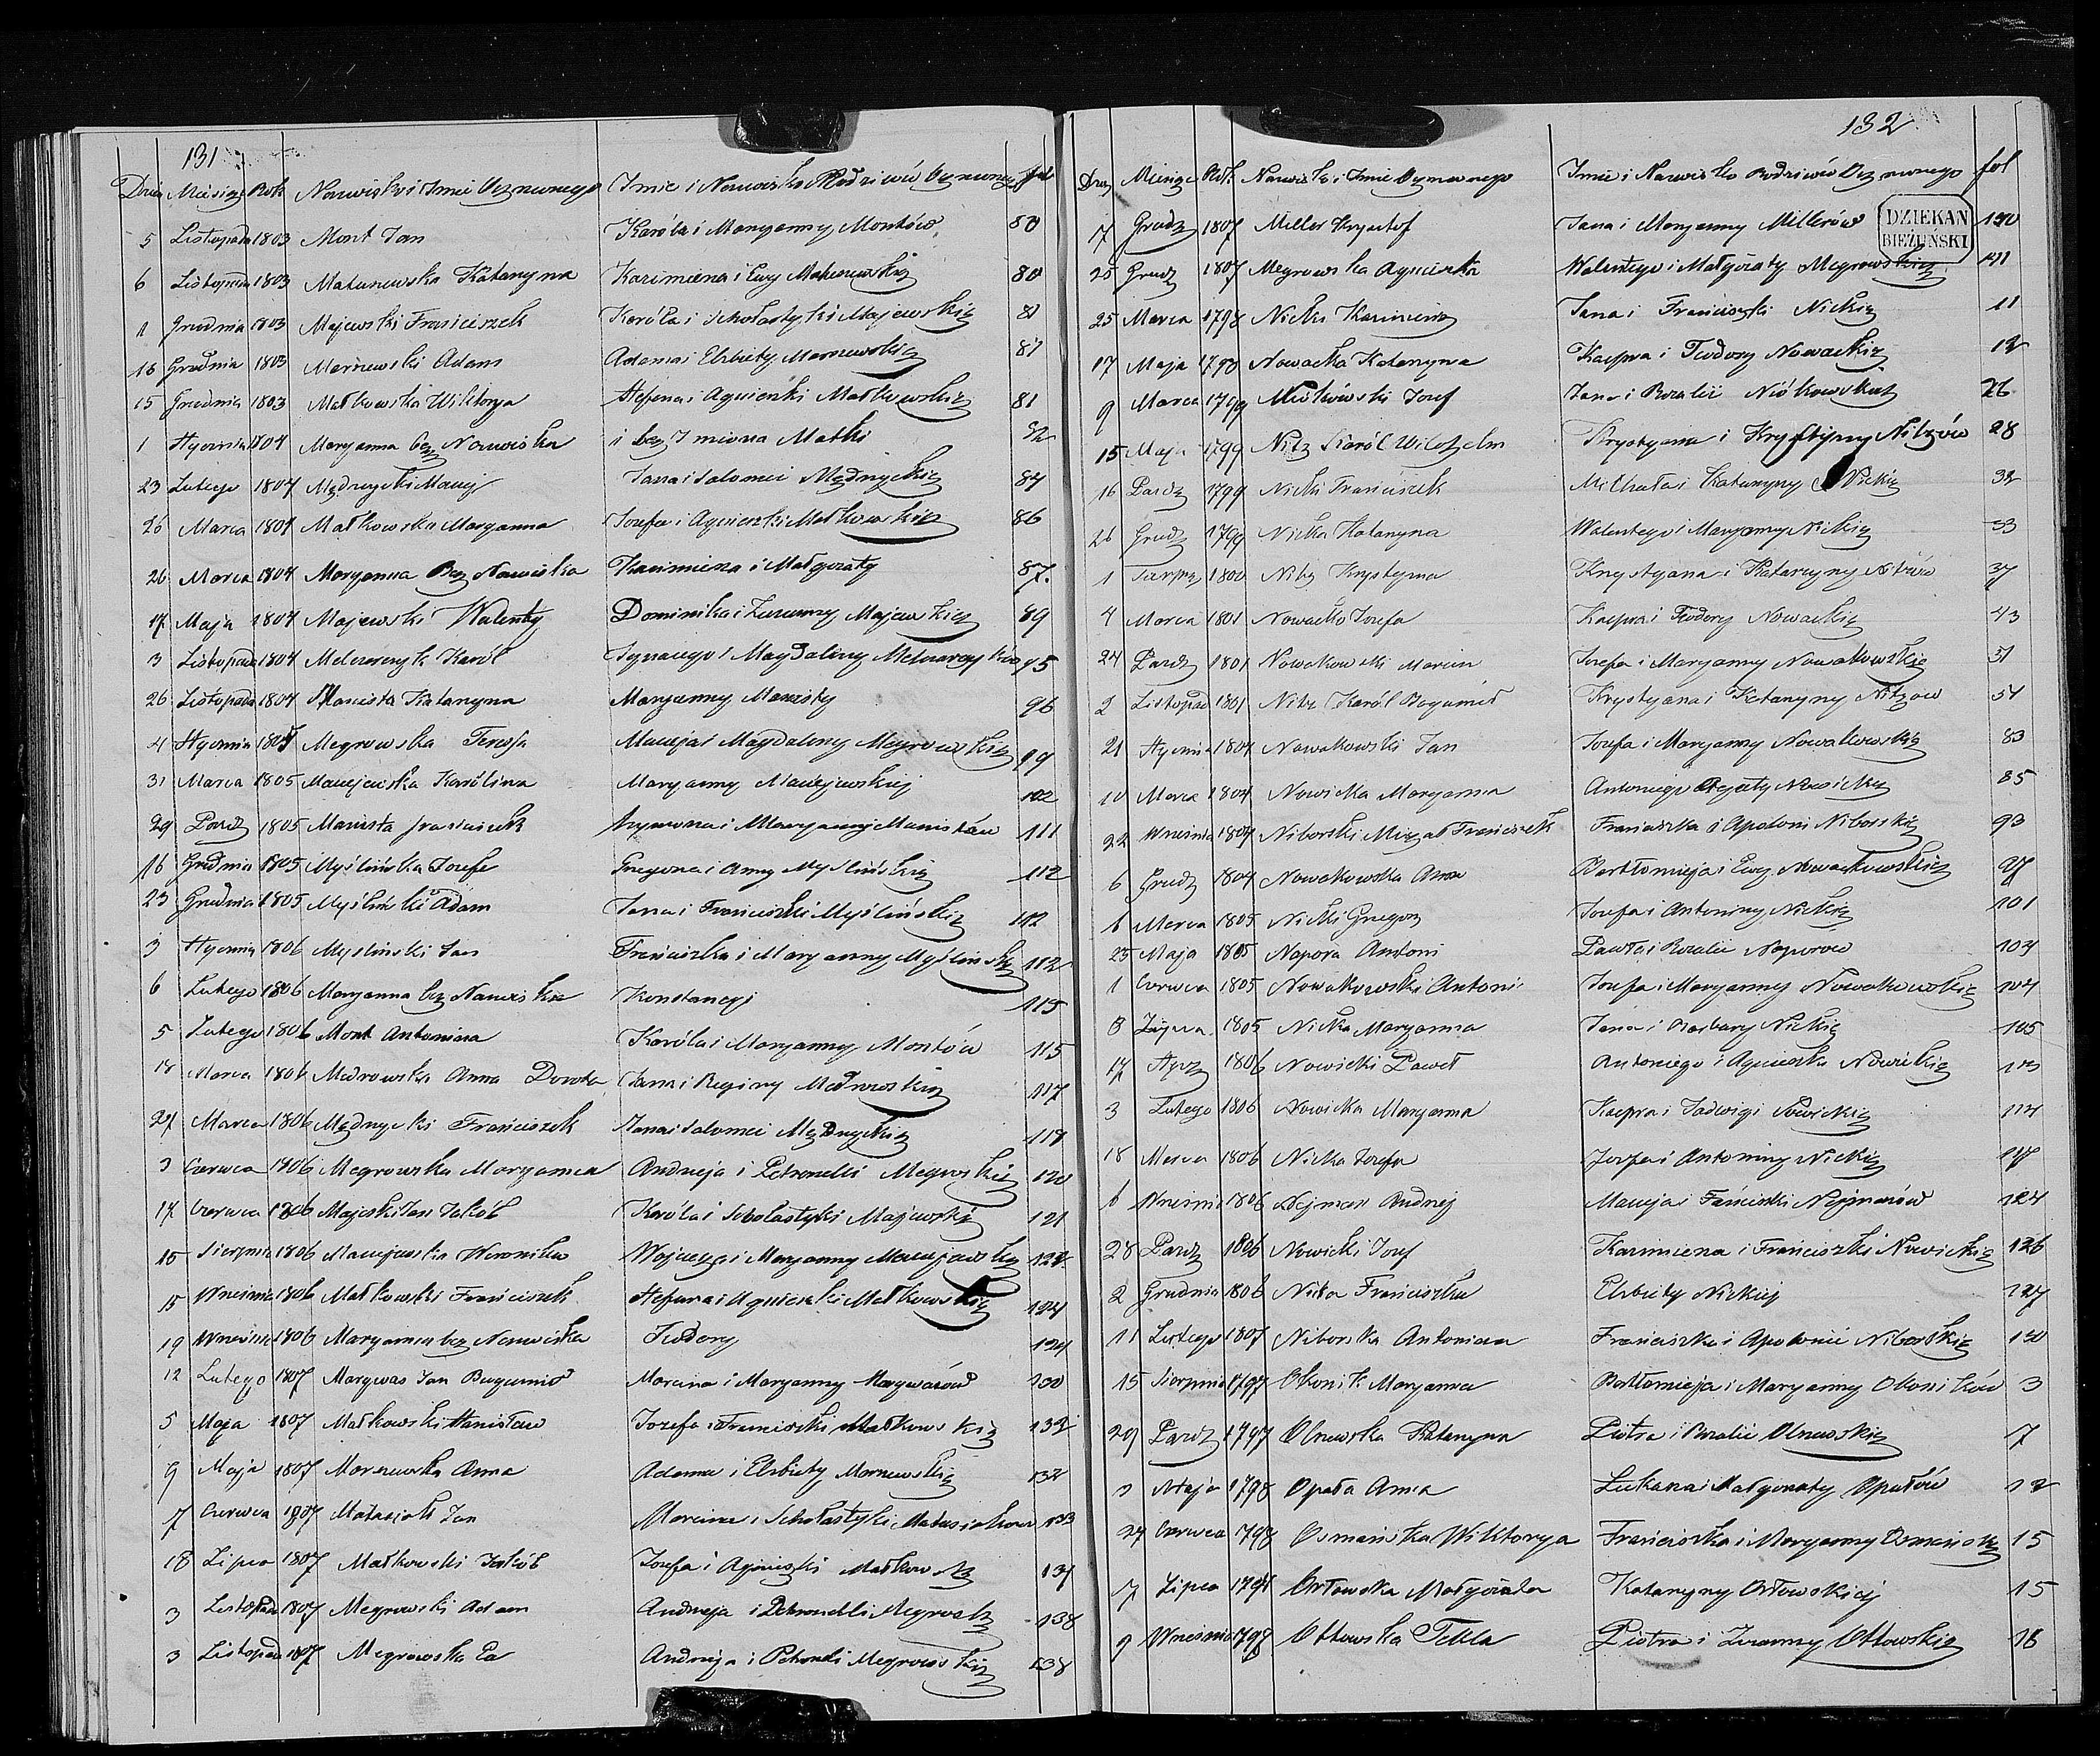 131
Dzień Miesiąc Rok Nazwisko i Imie Oznanego Imie i Nazwisko Rodziców fol
5 Listopada 1803 Mont Jan Karóla i Maryanny Montów 80
6 Listopada 1803 Matuszewska Katarzyna Kazimierza i Ewy 80
1 Grudnia 1803 Majewski Franciszek Karóla i Scholastyki Majewskich 81
16 Grudnia 1803 Adam Adama i Elzbiety 81
15 Grudnia 1803 Małkowska Wiktorya Stefana i Agnieszki Małkowskich 81
1 Stycznia 1804 Maryanna bez Nazwiska i bez Imiona Matki 82
23 Lutego 1804 Mędrzycki Maciej Jana i Salomei Mędrzyckich 84
26 Marca 1804 Małkowska Maryanna Jozefa i Agnieszki Małkowskich 86
26 Marca 1804 Maryanna Bez Nazwiska Kazimierza i Małgorzaty 87.
17 Maja 1804 Majewski Walenty Dominika i Zuzanny Majewskich 89
3 Listopada 1804 Karól Ignacego i Magdaleny 95
26 Listopada 1804 Katarzyna Maryanny 96
4 Stycznia 1805 Megrowska Teresa Macieja i Magdaleny Megrowskich 99
31 Marca 1805 Maciejewska Karólina Maryanny Maciejewskiej 102
29 Pazdz 1805 Franciszek Szymona i Maryanny 111
16 Grudnia 1805 Myślińska Jozefa Grzegorza i Anny Myślińskich 112
23 Grudnia 1805 Myśliński Adam Jana i Franciszki Myślińskich 112
3 Stycznia 1806 Myslinski Jan Franciszka i Maryanny Myślińskich 112
6 Lutego 1806 Maryanna bez Nazwiska Konstancyi 115
5 Lutego 1806 Mont Antonina Karóla i Maryanny Montów 115
Marca 1806 Anna Dorota Jana i Reginy 117
27 Marca 1806 Mędrzycki Franciszek Jana i Salomei Mędrzyckich 118
3 Czerwca 1806 Megrowska Maryanna Andrzeja i Petronelli 120
17 Czerwca 1806 Jan Jakób Karóla i Scholastyki Majewskich 121
10 Sierpnia 1806 Maciejewska Weronika Wojciecha i Maryanny Maciejewskich
15 Wrzesnia 1806 Małkowski Franciszek Stefana i Agnieszki Małkowskich 124
19 Wrzesnia 1806 Maryanna bez Nazwiska Teodory 124
12 Lutego 1807 Marywas Jan Bogumił Marcina i Maryanny Marywasów 130
5 Maja 1807 Małkowski Stanisław Jozefa i Małkowskich 132
9 Maja 1807 Anna Adama i Elzbiety 132
7 Czerwca 1807 Matusiak Jan Marcina i Scholastyki Matusiaków 133
18 Lipca 1807 Małkowski Jakób Jozefa i Agnieszki Małkowskich 134
3 Listopada 1807 Megrowski Adam Andrzeja i Petronelli 138
3 Listopad 1807 Megrowska Andrzeja i Petroneli Megrowskich 138
132
Dzień Miesiąc Rok Nazwisko i Imie Imie i Nazwisko Rodziców fol
17 Grudz 1807 Miller Krysztof Jana i Maryanny Millerów 140
DZIEKAN
BIEŻUŃSKI
25 Grudz 1807 Megrowska Agnieszka Walentego i Małgorzaty Megrowskich 141
25 Marca 1798 Nicki Kazimierz Jana i Franciszki Nickich 11
17 Maja 1798 Nowacka Katarzyna Kacpra i Teodory Nowackich 12
9 Marca 1799 Jozef Jana i Rozalii 26
15 Maja 1799 Nitz Karól Wilchelm Krystyana i Krystyny Nitzów 28
16 Pazdz 1799 Nicki Franciszek Michała i Katarzyny Nickich 32
26 Grudz 1799 Nicka Katarzyna Walentego i Maryanny Nickich 33
1 Sierpnia 1800 Nitz Krystyna Krystyana i Katarzyny Nitzów 37
4 Marca 1801 Nowacka Jozefa Kacpra i Teodory Nowackich 43
24 Pazdz 1801 Nowakowski Marcin Jozefa i Maryanny Nowakowskich 51
2 Listopad 1801 Nitz Karól Bogumił Krystyana i Katarzyny Nitzow 51
21 Stycznia 1804 Nowakowski Jan Jozefa i Maryanny Nowakowskich 83
10 Marca 1804 Nowicka Maryanna Antoniego Nowickich 85
22 Wrzesnia 1804 Niborski Michał Franciszek Franciszka i Apoloni Niborskich 93
6 Grudz 1804 Nowakowska Anna Bartłomieja i Ewy Nowakowskich 97
6 Marca 1805 Nicki Grzegorz Jozefa i Antoniny Nickich 101
25 Maja 1805 Napora Antoni Pawła i Rozalii Naporow 104
1 Czerwca 1805 Nowakowski Antoni Jozefa i Maryanny Nowakowskich 104
8 Lipca 1805 Nicka Maryanna Jana i Barbary Nickich 105
17 Stycz 1806 Nowicki Paweł Antoniego i Agnieszki Nowickich 113
3 Lutego 1806 Nowicka Maryanna Kacpra i Jadwigi Nowickich 114
18 Marca 1806 Nicka Jozefa Jozefa i Antoniny Nickich 117
6 Wrzesnia 1806 Nejman Andrzej Macieja i Nejmanów 124
28 Pazdz 1806 Nowicki Jozef Kazimierza i Franciszki Nowickich 126
2 Grudnia 1806 Nicka Franciszka Elzbiety Nickiej 127
11 Lutego 1807 Niborska Antonina Franciszka i Apolonii Niborskich 130
15 Sierpnia 1797 Okonik Maryanna Bartłomieja i Maryanny Okoników 3
29 Pazdz 1797 Olszewska Katarzyna Piotra i Rozalii Olszewskich 7
3 Maja 1798 Opała Anna Łukasza i Małgorzaty Opałów 12
24 Czerwca 1798 Osmańska Wiktorya Franciszka i Maryanny Osmańskich 15
7 Lipca 1798 Orłowska Małgorzata Katarzyny Orłowskiej 15
9 Wrzesnia 1798 Ottowska Tekla Piotra i Zuzanny Ottowskich 16